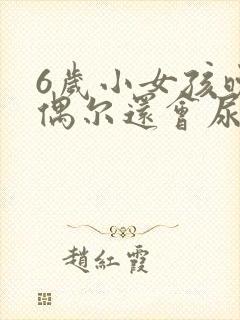 6歲小女孩
偶尔還會尿
趙紅霞